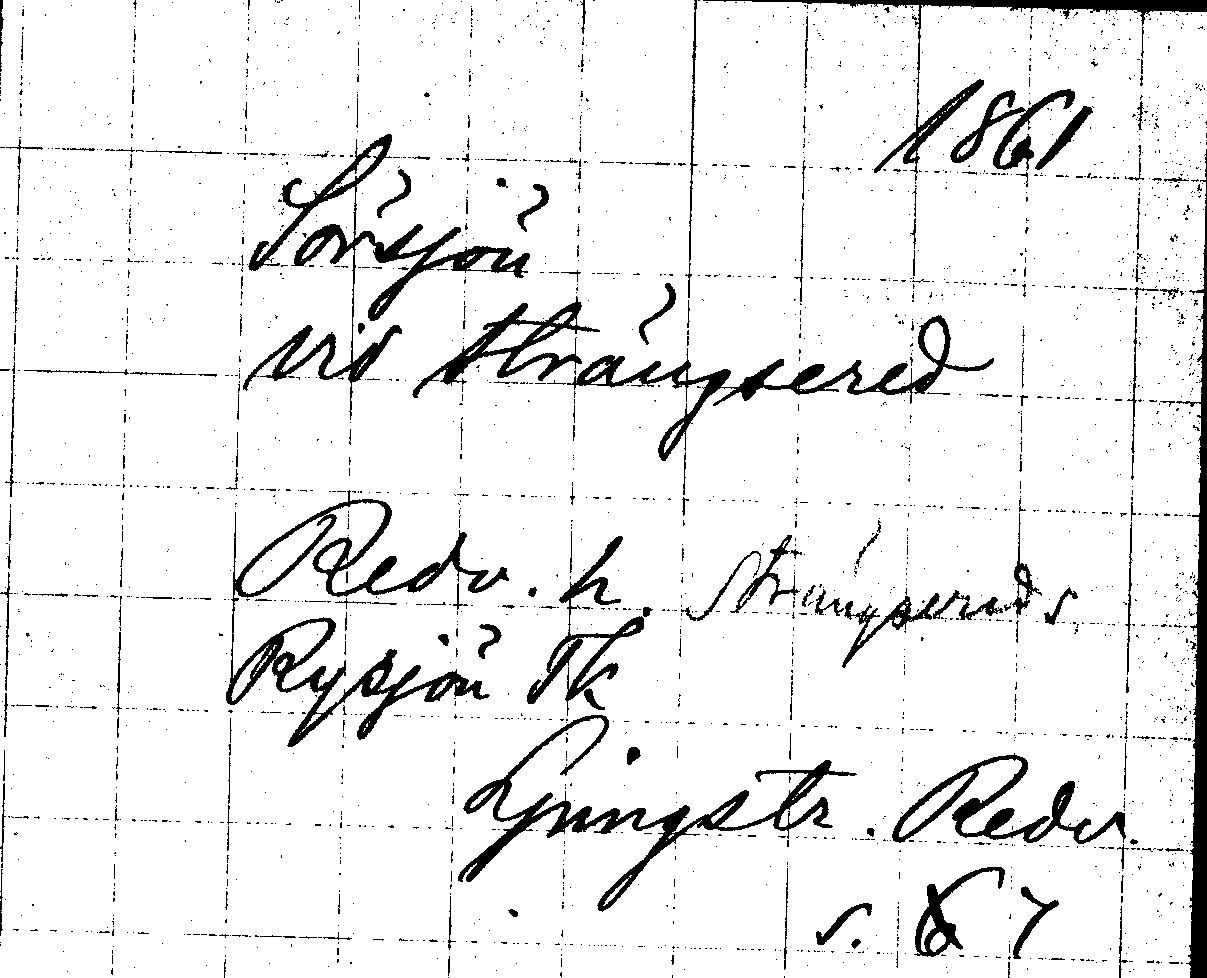 1861
Sörsjön
vid Strängsered
Redv. h. Strängsereds s.
Rysjön Tk
Ljungstr. Redv.
s. 67